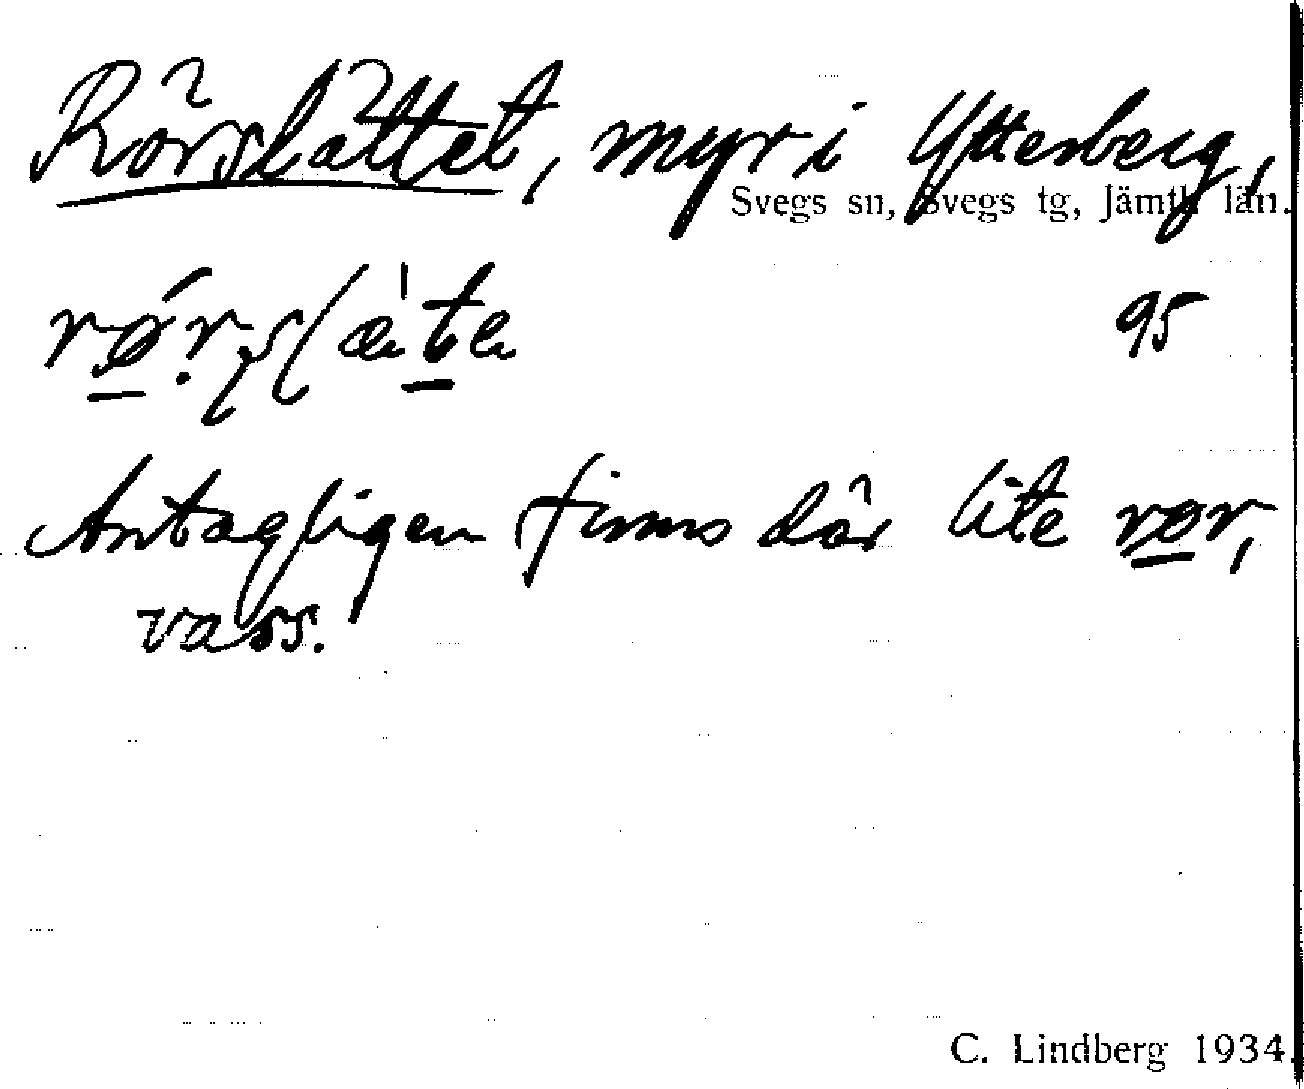 Rörslättet, myr i Ytterberg,
Svegs sn, Svegs tg, Jämtl. län.
95
Antagligen finns där lite rør,
vass.
C. Lindberg 1934.